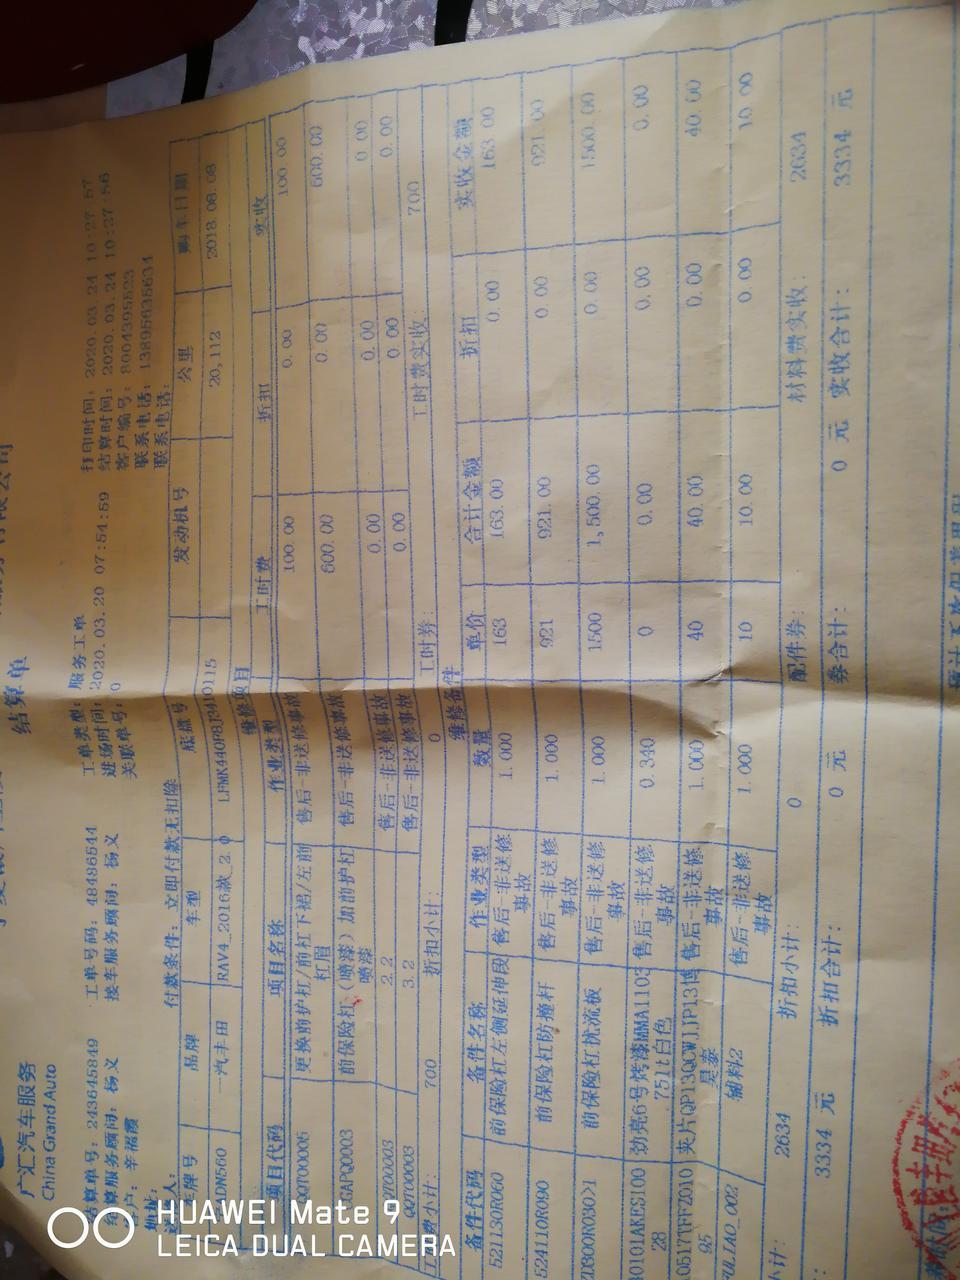 结算单
广汇汽车服务
China Grand Auto
结算单号: 243645849 工单号码: 48486544 工单类型: 服务工单 打印时间: 2020.03.24 10:27:57
结算服务顾问: 杨义 接车服务顾问: 杨义 进场时间: 2020.03.20 07:54:59 结算时间: 2020.03.24 10:27:56
客户: 辛福霞 关联单号: 0 客户编号: 8004395523
地址: 联系电话: 13895635634
付款条件: 立即付款无扣除 联系电话:
车牌号 品牌 车型 底盘号 发动机号 公里 购车日期
一汽丰田 RAV4_2016款_2.0 20,112 2018.08.08
维修项目
项目代码 项目名称 作业类型 工时费 折扣 实收
QQT00006 更换前护杠/前杠下裙/左前杠眉 售后-非送修事故 100.00 0.00 100.00
GAPQ0003 前保险杠(喷漆)加前护杠喷漆 售后-非送修事故 600.00 0.00 600.00
2.2 售后-非送修事故 0.00 0.00 0.00
QQT00003 3.2 售后-非送修事故 0.00 0.00 0.00
小计: 700 折扣小计: 0 工时券: 工时费实收: 700
维修备件
备件代码 备件名称 作业类型 数量 单价 合计金额 折扣 实收金额
521130R060 前保险杠左侧延伸段 售后-非送修事故 1.000 163 163.00 0.00 163.00
524110R090 前保险杠防撞杆 售后-非送修事故 1.000 921 921.00 0.00 921.00
前保险杠扰流板 售后-非送修事故 1.000 1500 1,500.00 0.00 1500.00
劲亮6号烤漆MMA1103751t白色 售后-非送修事故 0.340 0 0.00 0.00 0.00
售后-非送修事故 1.000 40 40.00 0.00 40.00
辅料2 售后-非送修事故 1.000 10 10.00 0.00 10.00
小计: 2634 折扣小计: 0 配件券: 材料费实收: 2634
3334 元 折扣合计: 0 元 券合计: 0 元 实收合计: 3334 元
HUAWEI Mate 9
LEICA DUAL CAMERA